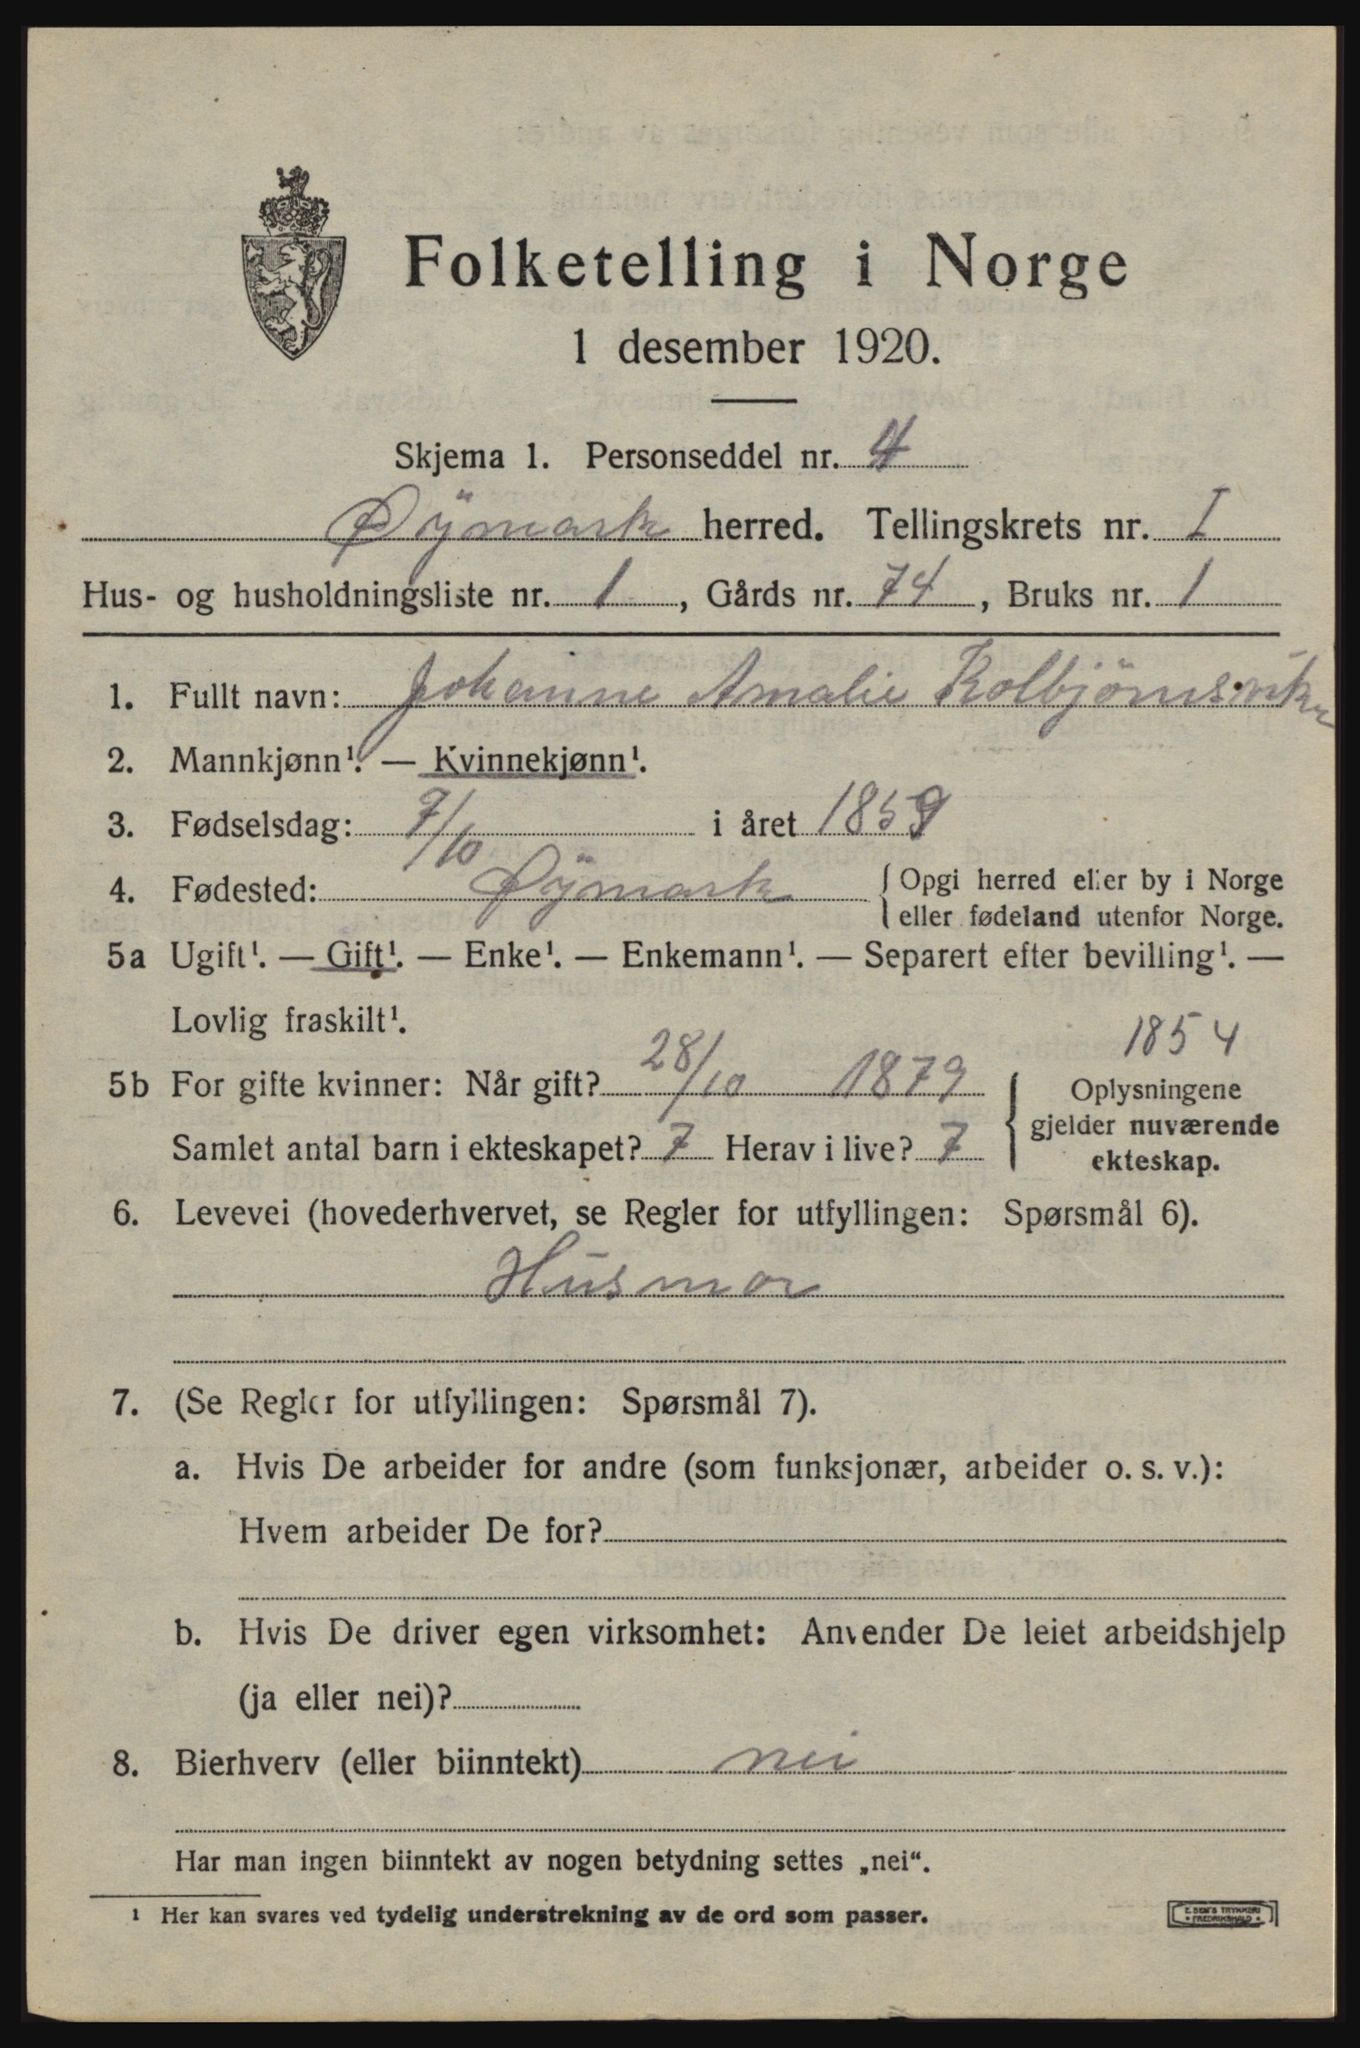 Folketelling i Norge
1 desember 1920.
Skjema 1. Personseddel nr. 4
Øymark herred. Tellingskrets nr. I
Hus- og husholdningsliste nr. 1, Gårds nr. 74, Bruks nr. 1
1. Fullt navn: Johanne Amalie Kolbjörnsviken
2. Mannkjønn¹. — Kvinnekjønn¹.
3. Fødselsdag: 7/10 i året 1859
4. Fødested: Øymark { Opgi herred eller by i Norge
eller fødeland utenfor Norge.
5a Ugift¹. — Gift¹. — Enke¹. — Enkemann¹. — Separert efter bevilling¹. —
Lovlig fraskilt¹.
1854
5b For gifte kvinner: Når gift? 28/10 1879 { Oplysningene
gjelder nuværende
Samlet antal barn i ekteskapet? 7 Herav i live? 7
ekteskap.
6. Levevei (hovederhvervet, se Regler for utfyllingen: Spørsmål 6).
Husmor
7. (Se Regler for utfyllingen: Spørsmål 7).
a. Hvis De arbeider for andre (som funksjonær, arbeider o. s. v.):
Hvem arbeider De for?
b. Hvis De driver egen virksomhet: Anvender De leiet arbeidshjelp
(ja eller nei)?
8. Bierhverv (eller biinntekt) nei
Har man ingen biinntekt av nogen betydning settes „nei“.
¹ Her kan svares ved tydelig understrekning av de ord som passer.
E. SEM'S TRYKKERI
• FREDRIKSHALD •